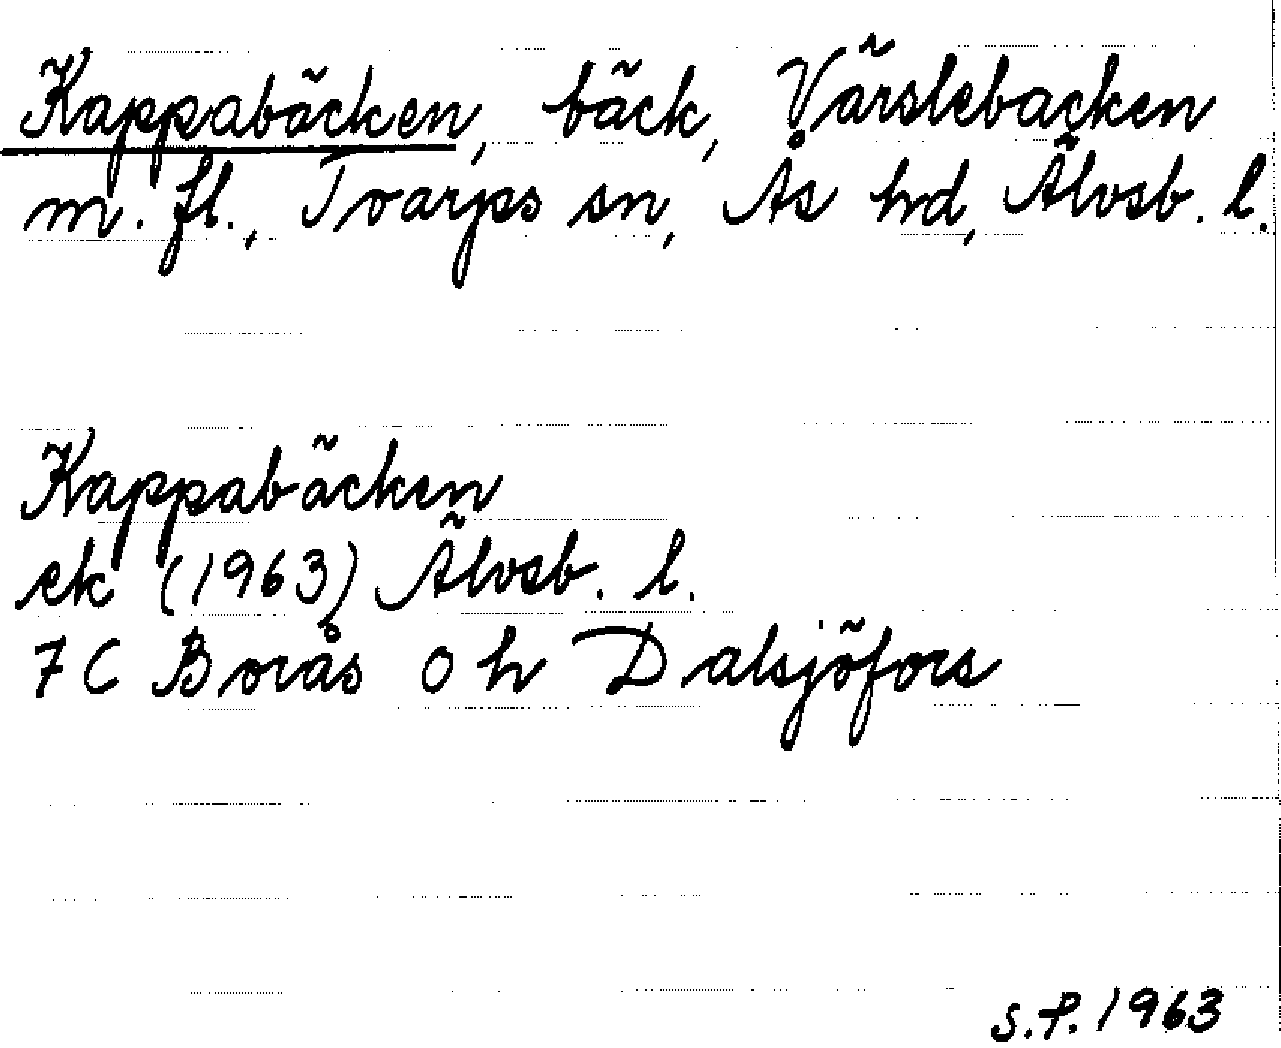 Kappabäcken, bäck, Värslebacken
m. fl., Tvarps sn, Ås hd, Älvsb. l.
Kappabäcken
ek (1963) Älvsb. l.
7C Borås 0 h Dalsjöfors
S.P. 1963